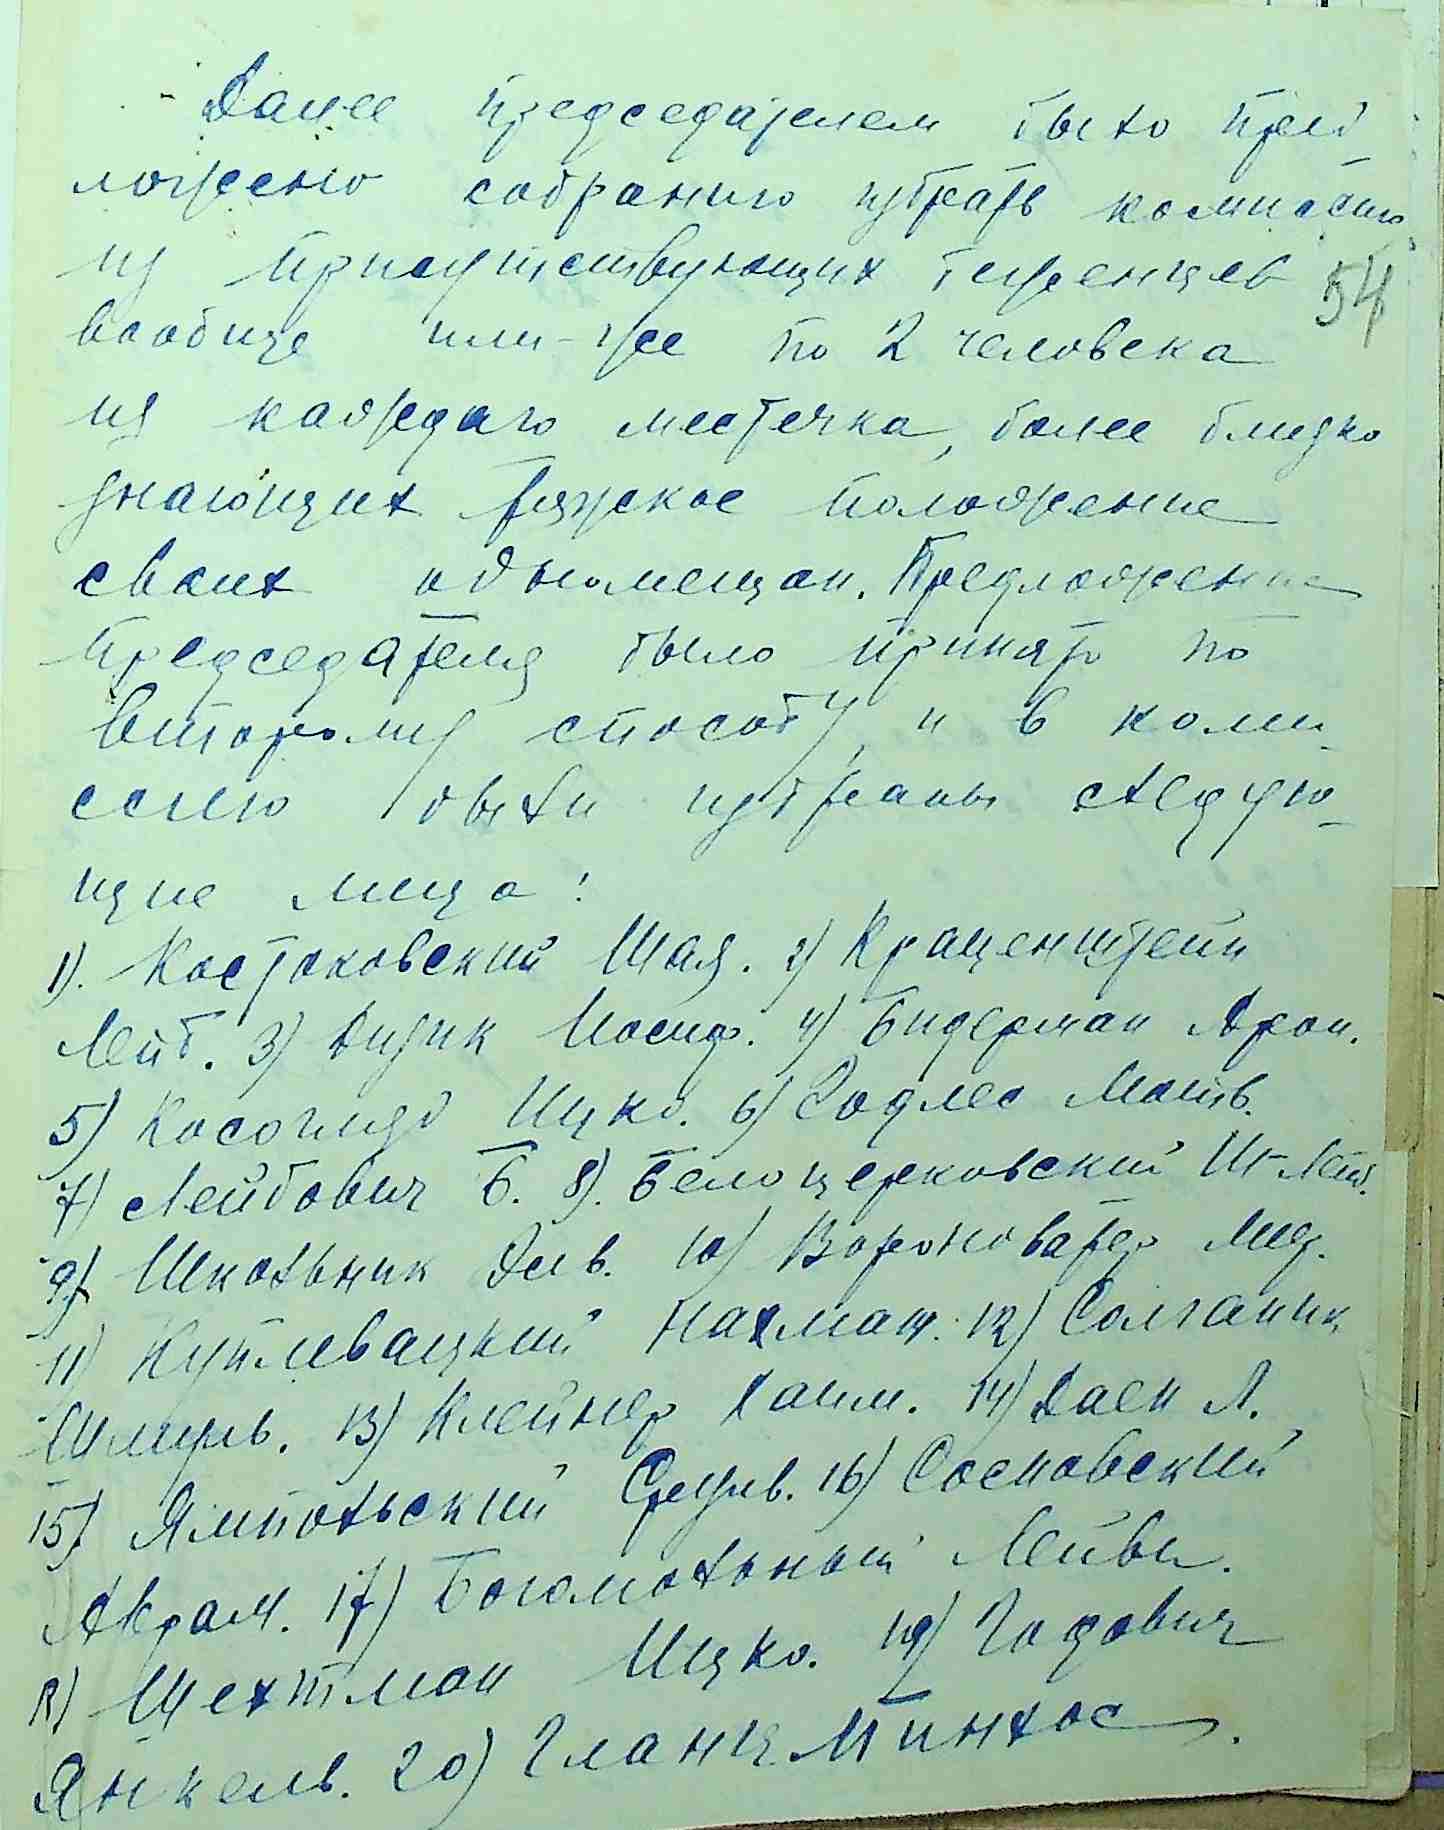 Далее председателем было пред
ложено собранию избрать комиссию
из присутствующих беженцев
54
вообще или-же по 2 человека
из каждаго местечка, более близко
знающих тяжское положение
своих одномещан. Предложение
председателя было принято по
второму способу, и в коми-
ссию были избраны следую-
щие лица:
1). Костаковский Шая. 2) Краценштейн
Лейб. 3) Дизик Иосиф. 4) Бидерман Арон.
5) Косоглядо Ицко. 6) Содлес Мотв.
7) Лейбович Б. 8). Белоцерковский Ш-Лейб.
9) Школьник Див. 10) Вороноватер Мез.
11) Куплевацкий Нахман. 12) Солганик
Шмуль. 13) Клейнер Хаим. 14) Даен Л.
15) Ямпольский Сруль. 16) Сосновский
Аврам. 17) Богомольный Лейви.
18) Шехтман Ицко. 19) Гадович
Янкель. 20) Гланц Пинхос.